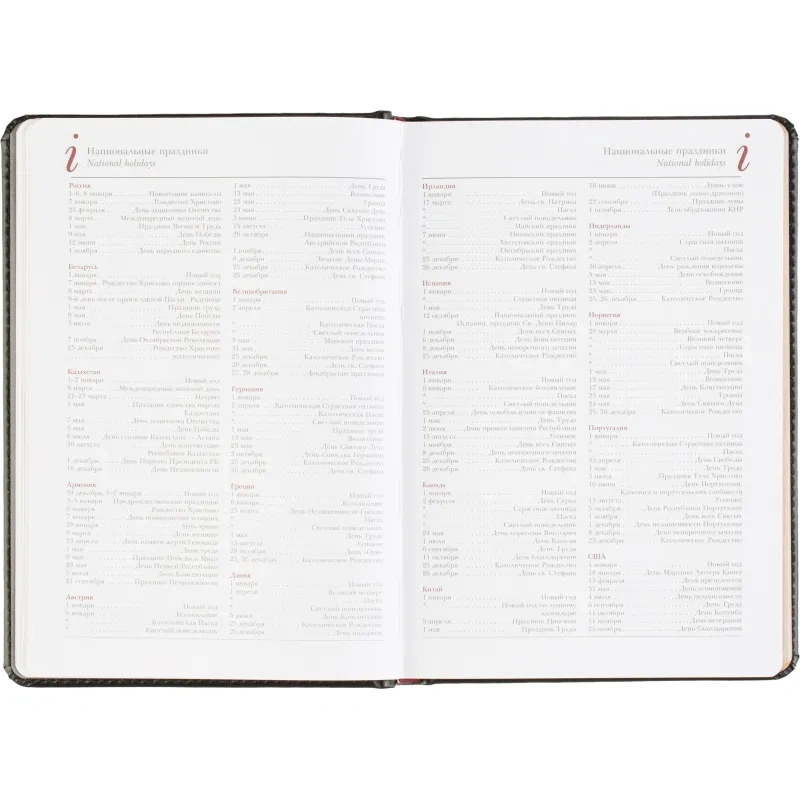 i
Национальные праздники
National holidays
Россия
1–6, 8 января Новогодние каникулы
7 января Рождество Христово
23 февраля День защитника Отечества
8 марта Международный женский день
1 мая Праздник Весны и Труда
9 мая День Победы
12 июня День России
4 ноября День народного единства
Беларусь
1 января Новый год
7 января Рождество Христово (православное)
8 марта День женщин
9-й день после православной Пасхи Радоница
1 мая Праздник труда
9 мая День Победы
3 июля День независимости
Республики Беларусь
7 ноября День Октябрьской Революции
25 декабря Рождество Христово
(католическое)
Казахстан
1–2 января Новый год
8 марта Международный женский день
21–23 марта Наурыз
1 мая Праздник единства народа
Казахстана
7 мая День защитника Отечества
9 мая День Победы
6 июля День столицы Казахстана – Астана
Республики Казахстан
1 декабря День Первого Президента РК
16 декабря День Независимости
Армения
Новый год
6 января Рождество Христово
28 января День армии
8 марта День женщин
1 мая День труда
9 мая Праздник Победы и Мира
28 мая День Первой Республики
5 июля День Конституции
21 сентября Праздник Независимости
Австрия
1 января Новый год
6 января Богоявление
* Католическая Пасха
* Светлый понедельник
1 мая День Труда
13 мая Вознесение
23 мая Троица
24 мая День Святого Духа
3 июня Праздник Тела Христова
15 августа Успение
26 октября Национальный праздник
Австрийской Республики
1 ноября День всех Святых
8 декабря Зачатие Девы Марии
25 декабря Католическое Рождество
26 декабря День св. Стефана
Великобритания
1 января Новый год
2 апреля Католическая Страстная
пятница
* Католическая Пасха
* Светлый понедельник
3 мая Майский праздник
25 декабря Католическое Рождество
26 декабря День св. Стефана
27, 28 декабря Декабрьские праздники
Германия
1 января Новый год
2 апреля Католическая Страстная пятница
* Католическая Пасха
* Светлый понедельник
1 мая Праздник труда
13 мая Вознесение
23 мая Троица
24 мая День Святого Духа
3 октября День единства Германии
25 декабря Католическое Рождество
26 декабря День св. Стефана
Греция
1 января Новый год
6 января Богоявление
25 марта День Независимости Греции
* Пасха
* Светлый понедельник
1 мая День Труда
15 августа Успение
28 октября День «Охи»
25, 26 декабря Католическое Рождество
Дания
1 января Новый год
1 апреля Великий четверг
* Пасха
* Светлый понедельник
5 июня День Конституции
25 декабря Католическое Рождество
26 декабря День подарков
Национальные праздники
National holidays
i
Ирландия
1 января Новый год
17 марта День св. Патрика
* Пасха
* Светлый понедельник
* Майский праздник
7 июня Июньский праздник
* Августовский праздник
* Октябрьский праздник
25 декабря Католическое Рождество
26 декабря День св. Стефана
Испания
1 января Новый год
* Страстная пятница
1 мая День Труда
12 октября Национальный праздник
Испании, праздник Св. Девы Пилар
1 ноября День всех Святых
6 декабря День Конституции
8 декабря День непорочного зачатия
25 декабря Католическое Рождество
Италия
1 января Новый год
6 января Католическое богоявление
* Пасха
* Светлый понедельник
25 апреля День освобождения от фашизма
1 мая День Труда
2 июня День провозглашения Республики
15 августа Успение
1 ноября День всех Святых
8 декабря День непорочного зачатия
25 декабря Католическое Рождество
26 декабря День св. Стефана
Канада
1 января Новый год
2 февраля День Сурка
* Страстная пятница
* Пасха
* Светлый понедельник
24 мая День королевы Виктории
1 июля День Канады
6 сентября День Труда
11 октября День благодарения
25 декабря Католическое Рождество
26 декабря День св. Стефана
Китай
1 января Новый год
* Новый год по лунному
календарю
5 апреля Праздник Цинмин
1 мая Праздник Труда
16 июня Дуань-у-цзе
(Праздник золотого дракона)
22 сентября Праздник луны
1 октября День образования КНР
Нидерланды
1 января Новый год
2 апреля Страстная пятница
* Пасха
* Светлый понедельник
30 апреля День рождения королевы
5 мая День освобождения
13 мая Вознесение
23 мая Троица
25, 26 декабря Католическое Рождество
Норвегия
1 января Новый год
28 марта Вербное воскресенье
* Великий четверг
* Страстная пятница
* Пасха
* Светлый понедельник
1 мая День Труда
13 мая Вознесение
17 мая День Конституции
23 мая Троица
24 мая День Святого Духа
25, 26 декабря Католическое Рождество
Португалия
1 января Новый год
* Католическая Страстная пятница
* Пасха
25 апреля День Свободы
1 мая День Труда
3 июня Праздник Тела Христова
10 июня День Португалии,
15 августа Успение
5 октября День Республики Португалии
1 ноября День всех Святых
1 декабря День независимости Португалии
8 декабря День непорочного зачатия
25 декабря Католическое Рождество
США
1 января Новый год
18 января День Мартина Лютера Кинга
15 февраля День президентов
31 мая День поминовения
4 июля День независимости
6 сентября День Труда
11 октября День Колумба
11 ноября День ветеранов
25 ноября День благодарения